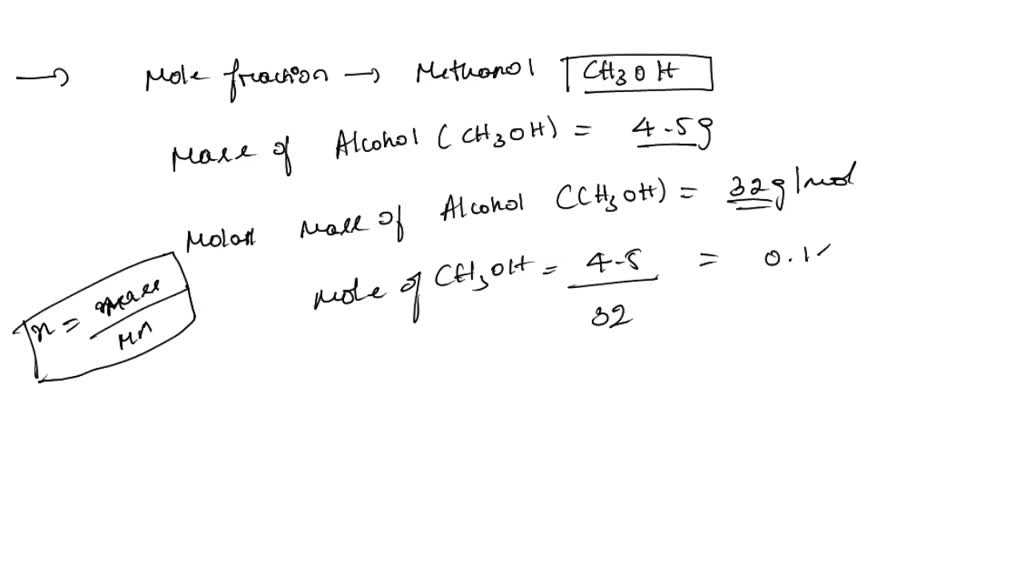 → Mole fraction → Methanol CH3OH
Mass of Alcohol (CH3OH) = 4.5g
Molar mass of Alcohol (CH3OH) = 32g/mol
mole of CH3OH = 4.5 / 32 = 0.1
n = mass / MM